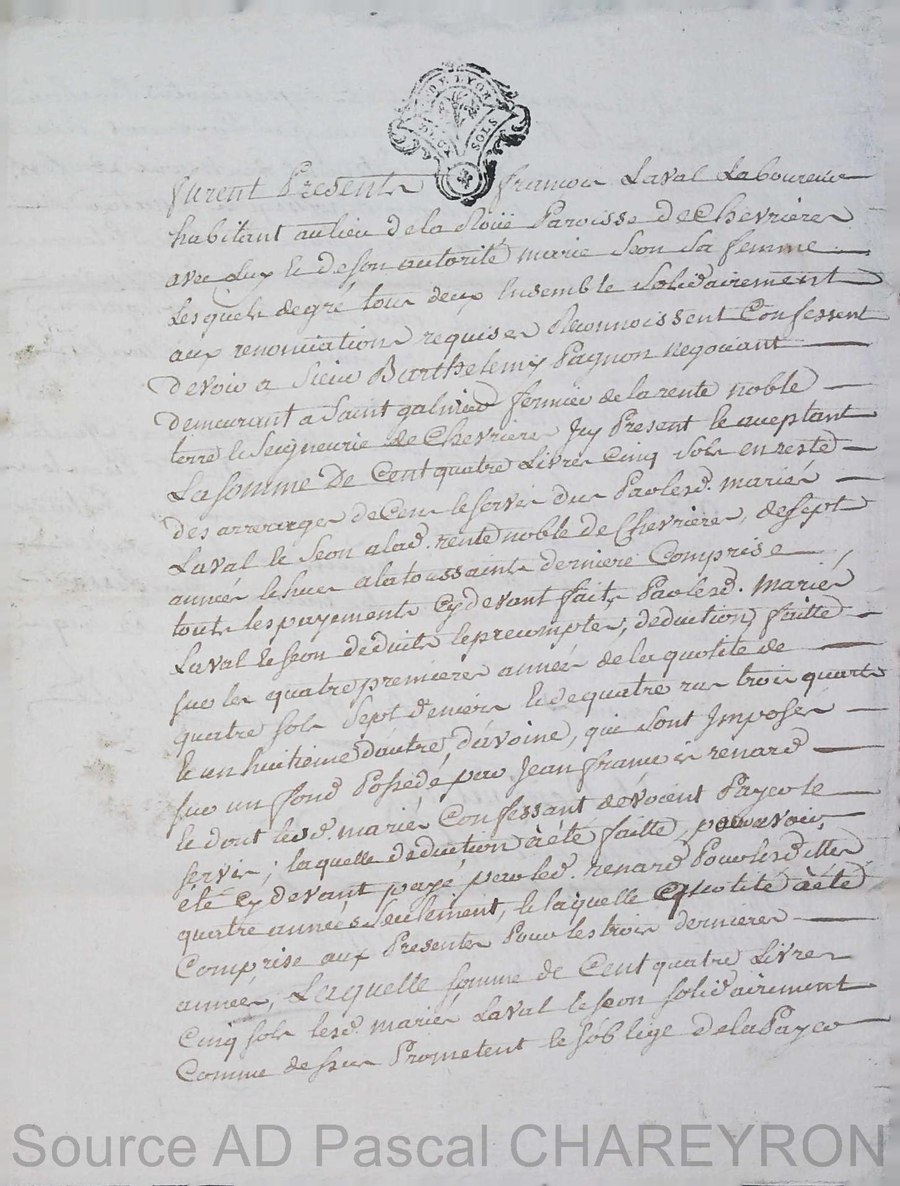 DE LYON
SOLS
furent Presents francois Laval Laboureur
habitant au lieu de la Roüe Paroisse de Chevrières
avec luy et de son autorité marie Seon Sa femme
Lesquels de gré tous deux Ensemble Solidairement
aux renonciations requises Reconnoissent Confessent
devoir a Sieur Barthelemy Pagnon negociant
demeurant a Saint galmier fermier de la rente noble
terre et Seigneurie de Chevrieres Icy Present et aceptant
La somme De Cent quatre Livres Cinq Sols en reste
des arrerages de Cens et servis dus Par lesd. mariés
Laval et Seon a lad. rente noble de Chevrières, de sept
années echues a la toussaints derniere Comprise
touts les payements cy devant faits Par lesd. mariés
Laval et Seon deduits et precomptés, deduction faitte
sur les quatre premieres années de la quotité de
quatre sols Sept deniers et de quatre ras trois quarts
et un huitieme d'autre d'avoine, qui sont Imposés
sur un fond Possedé par Jean francois renard
et dont lesd. mariés Confessant devoient Payer le
servis; laquelle deduction à été faitte, pour avoir
été Cy devant payé par led. renard Pour lesdittes
quatre années seulement, et laquelle quotité à été
Comprise aux Presentes Pour les trois dernieres
années, Laquelle somme de Cent quatre Livres
Cinq sols lesd. mariés Laval et Seon solidairement
Comme dessus Prometent et s'oblige de la Payer
Source AD Pascal CHAREYRON